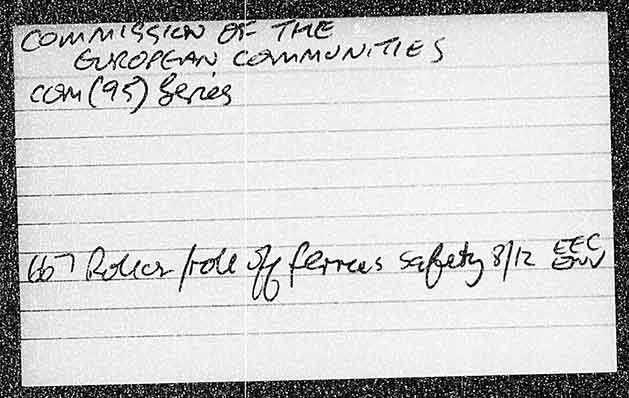 COMMISSION OF THE
EUROPEAN COMMUNITIES
COM(95) Series
667 Roll off ferries safety 8/12 EEC
ENV